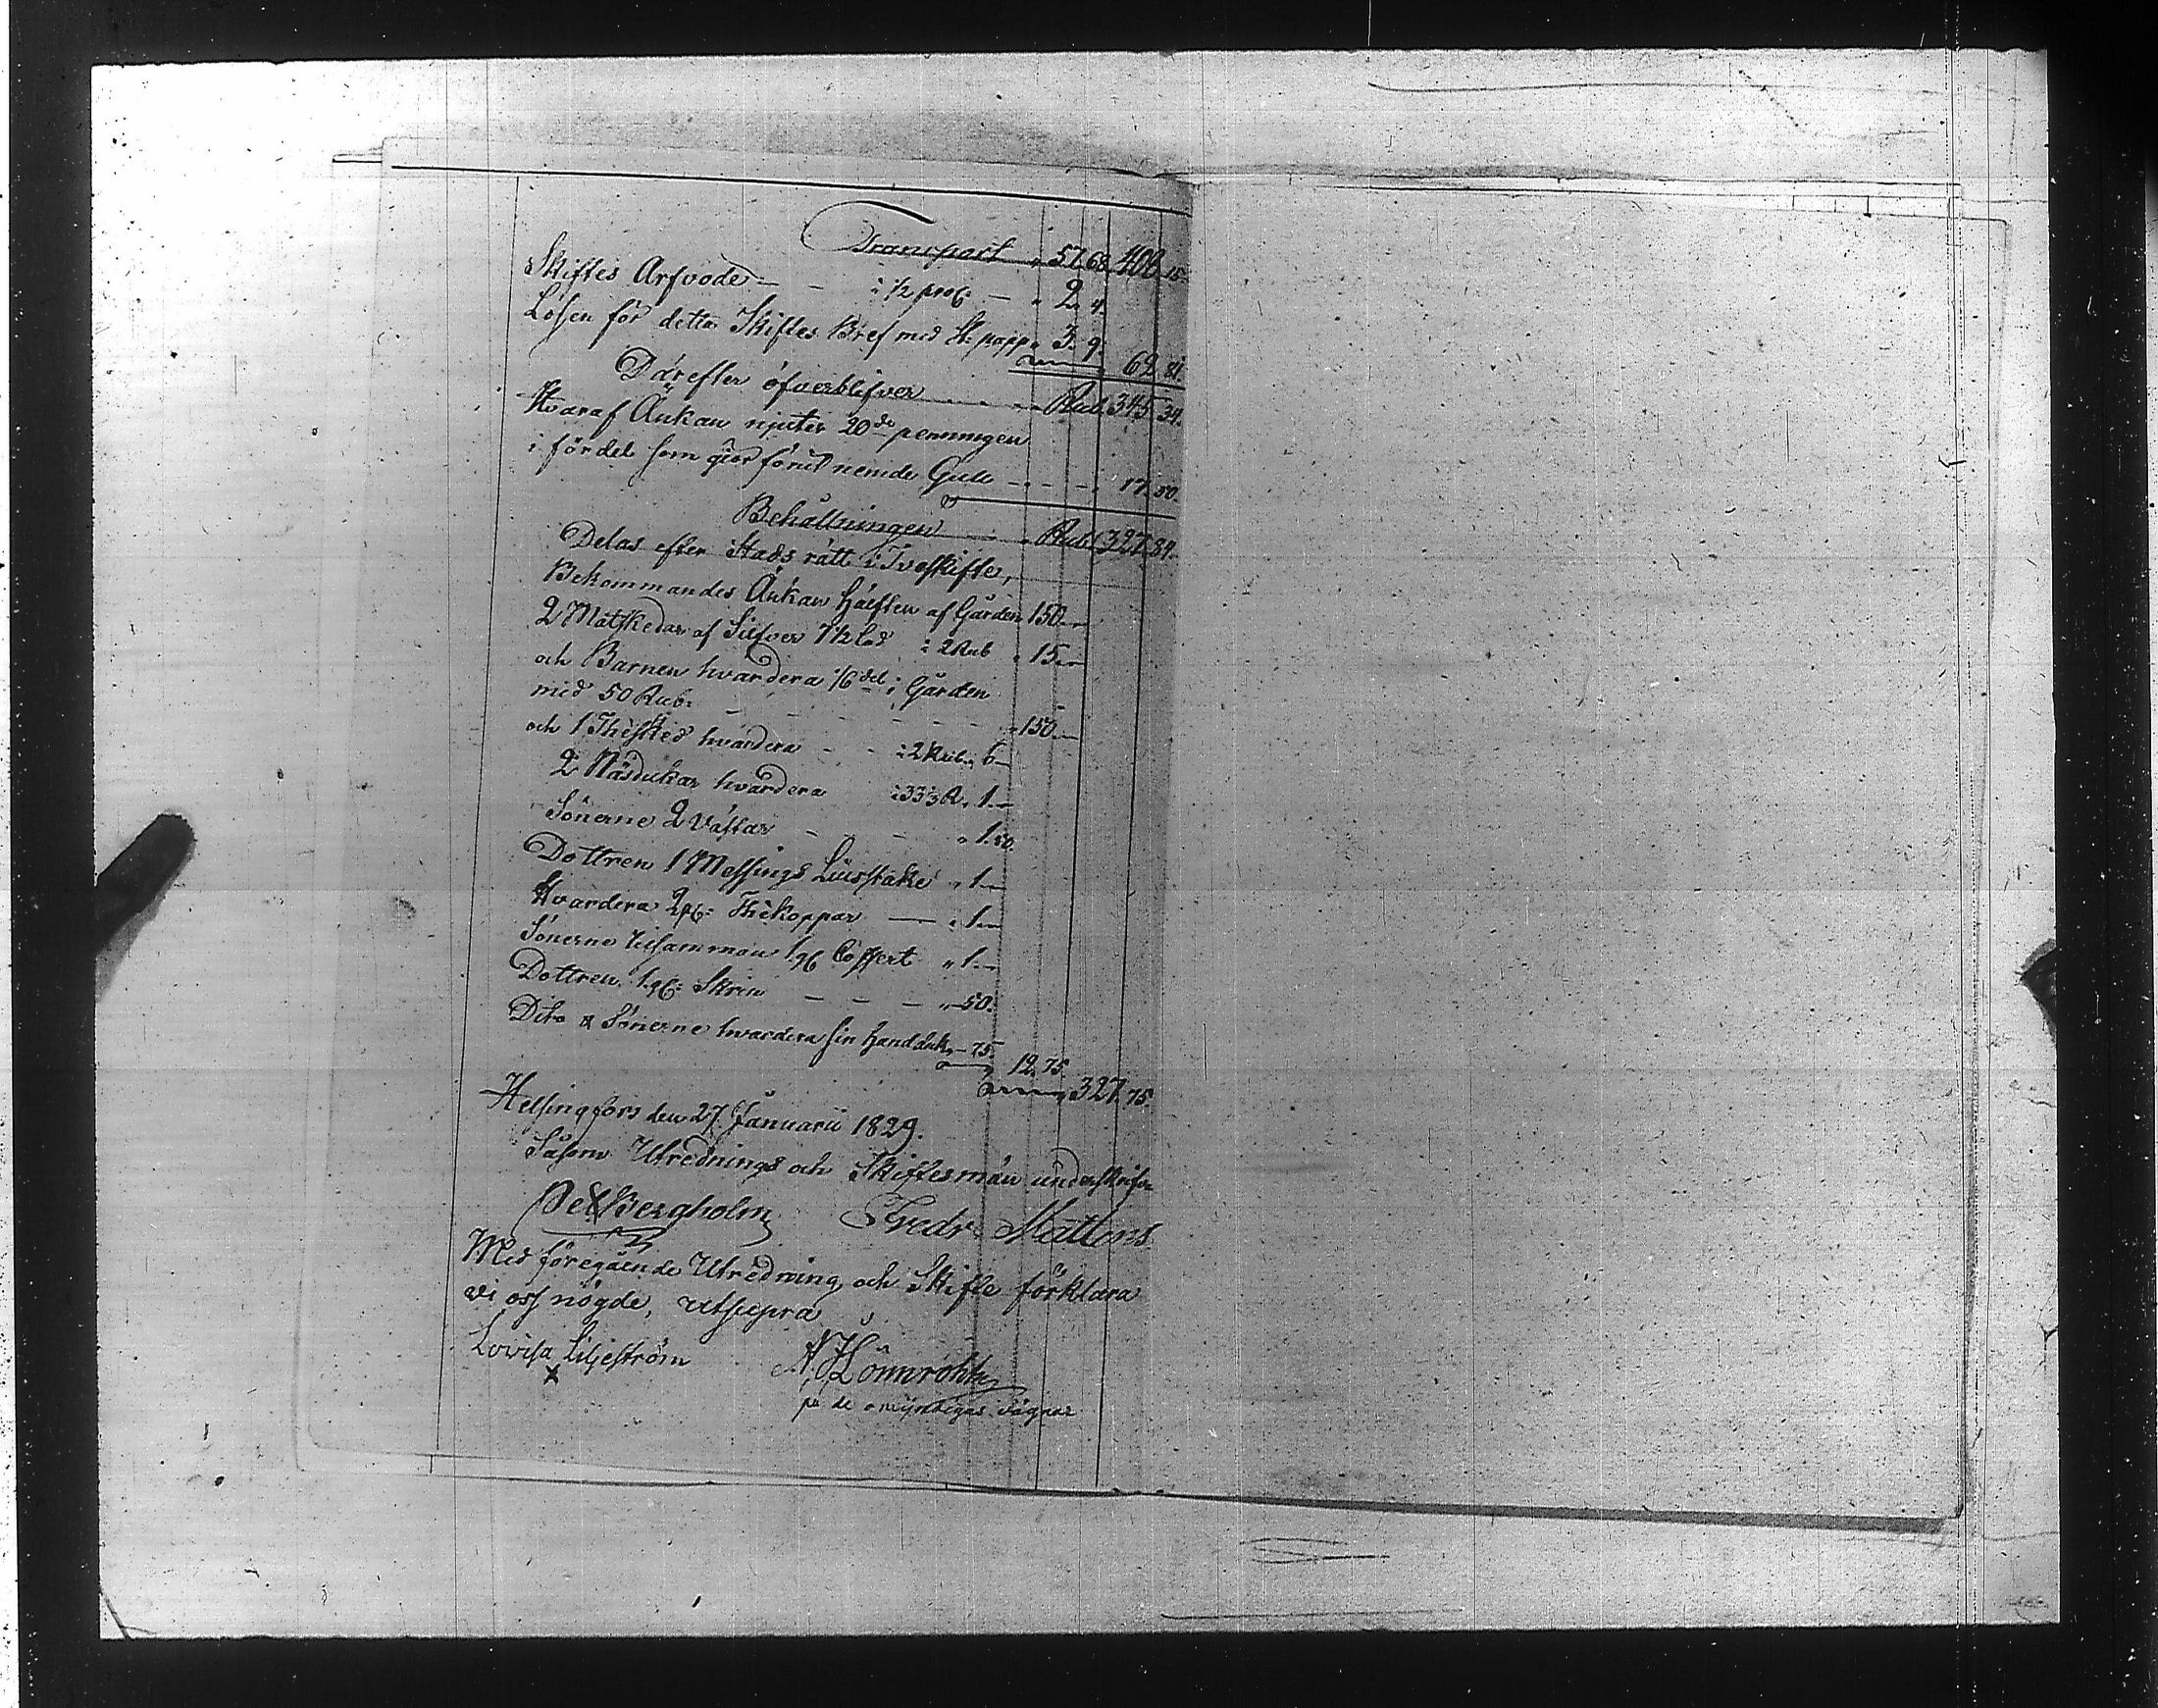 Transport „ 57. 68. 408. 15.
Skiftes Arfvode — — à ½ proC: — „ 2. 4.
Lösen för detta Skiftes Bref med St: papp „ 3. 9. 62. 81.
Därefter öfverblifver . . . Rub. 345. 34.
Hvaraf Änkan njuter 20de penningen
i fördel som giör förut nemde Gull — — — 17. 50.
Behållningen — Rub. 327. 84.
Delas efter Stads rätt i Tveskifte,
Bekommandes Änkan Hälften af Gården 150.—
2 Matskedar af Silfver 7½ lod à 2 Rub „ 15.—
och Barnen hvardera 1/6 del i Gården
med 50 Rub: — — — — — — „ 150.—
och 1 Thésked hvardera — — à 2 Rub. „ 6.—
2 Näsdukar hvardera à 33⅓ R. „ 1.—
Sönerne 2 Västar — — „ 1. 50.
Dottren 1 Messings Liusstake „ 1.—
Hvardera 2 p6: Thékoppar — „ 1.—
Sönerne tilsamman 1 p6 Coffert „ 1.—
Dottren 1 p6: Skrin — — — „ —50.
Dito & Sönerne hvardera sin Handduk „ —75. 12. 75.
327. 75.
Helsingfors den 27. Januarii 1829.
Såsom Utrednings och Skiftesmän underskrifva
Bergholm Fredr: Mattens
Med föregående Utredning och Skifte förklara
vi oss nögde, utsupra
Lovisa Liljeström
x
på de omyndigas vägnar